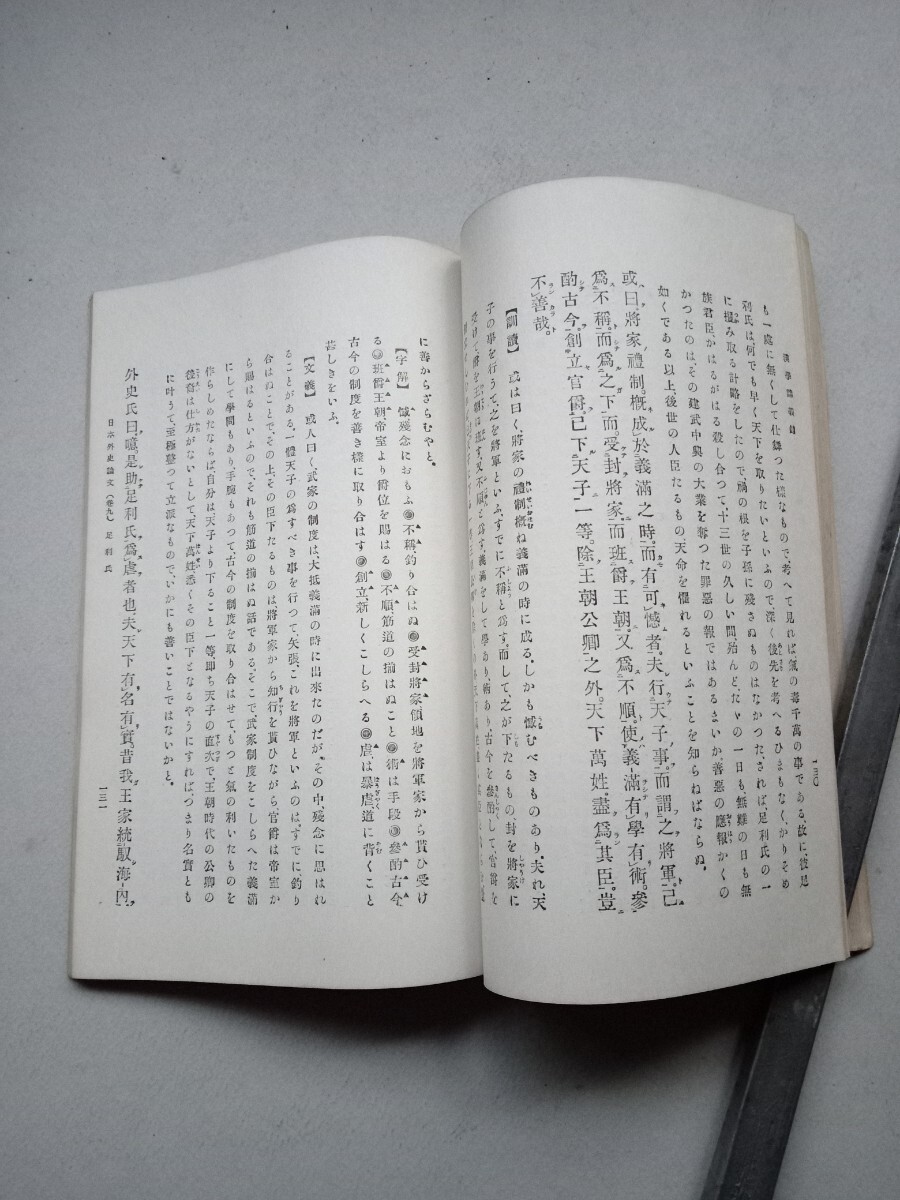 漢學講義録
一三〇
も一處に無くして仕舞つた樣なもので、考へて見れば氣の毒千萬の事である、故に彼足
利氏は何でも早く天下を取りたいといふので、深く後先を考へるひまもなく、かりそめ
に掴み取る計略をしたので、禍の根を子孫に殘さぬものはなかつた、されば足利氏の一
族君臣かはるがはる殺し合つて、十三世の久しい間、殆んど、たヾの一日も、無難の日も無
かつたのはその建武中興の大業を奪つた罪惡の報ではあるまいか。善惡の應報かくの
如くである以上後世の人臣たるもの天命を懼れるといふことを知らねばならぬ。
或曰、將家禮制、概成於義滿之時。而有可憾者。夫行天子事。而謂之將軍。已
爲不稱。而爲之下而、受封將家、而班爵王朝。又爲不順。使義滿有學有術。參
酌古今。創立官爵。己下天子一等。除王朝公卿之外。天下萬姓、盡爲其臣。豈
不善哉。
【訓讀】 或は曰く、將家の禮制概ね義滿の時に成る。しかも憾むべきものあり。夫れ天
子の事を行うて、之を將軍といふ。すでに不稱と爲す。而して、之が下たるもの封を將家に
受けて、爵を王朝に班す。又不順と爲す。義滿をして學あり、術あり、古今を參酌して、官爵を
に善からざらむやと。
【字解】 憾殘念におもふ◉不稱釣り合はぬ◉受封將家領地を將軍家から貰ひ受け
る◉班爵王朝帝室より爵位を賜はる◉不順筋道の揃はぬこと◉術は手段◉參酌古今
古今の制度を善き樣に取り合はす◉創立、新しくこしらへる◉虐は暴虐、道に背くこと
甚しきをいふ。
【文義】 或人曰く武家の制度は、大抵義滿の時に出來たのだが、その中、殘念に思はれ
ることがある。一體天子の爲すべき事を行つて、矢張、これを將軍といふのは、すでに釣り
合はぬことで、その上、その臣下たるものは、將軍家から知行を貰ひながら官爵は帝室か
ら賜はるといふので、それも筋道の揃はぬ話である。そこで武家制度をこしらへた義滿
にして學問もあり、手腕もあつて古今の制度を取り合はせて、もつと氣の利いたものを
作らしめたならば、自分は天子より下ること一等、即ち天子の直次で、王朝時代の公卿の
後裔は仕方がないとして、天下萬姓悉くその臣下となるやうにすれば、づまり名實とも
に叶うて、至極整つて立派なもので、いかにも善いことではないかと。
外史氏曰。噫、是助足利氏爲虐者也。夫天下有名有實。昔我王家統馭海内。
日本外史論文(卷九) 足利氏
一三一